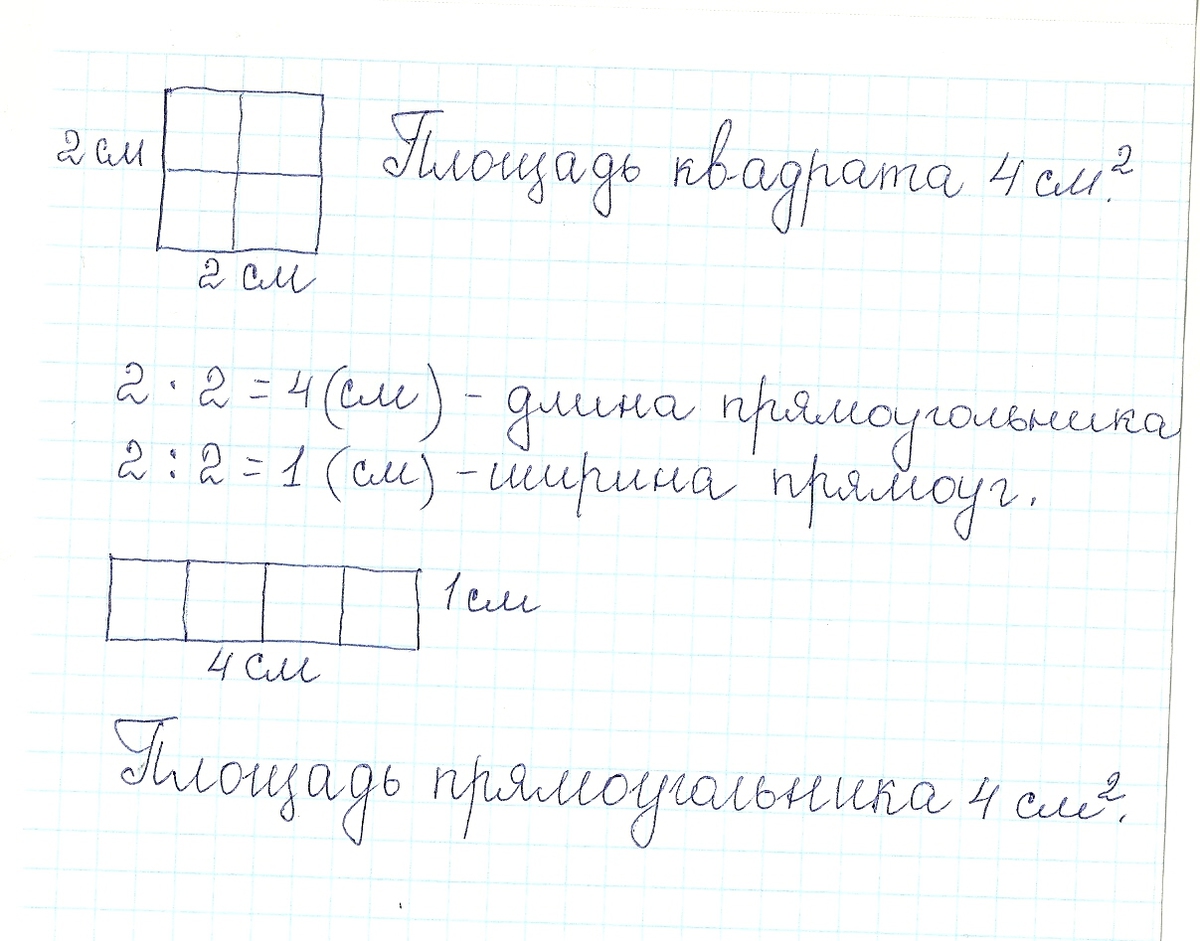 2 см
Площадь квадрата 4 см².
2 см
2 · 2 = 4 (см) - длина прямоугольника
2 : 2 = 1 (см) - ширина прямоуг.
1 см
4 см
Площадь прямоугольника 4 см².